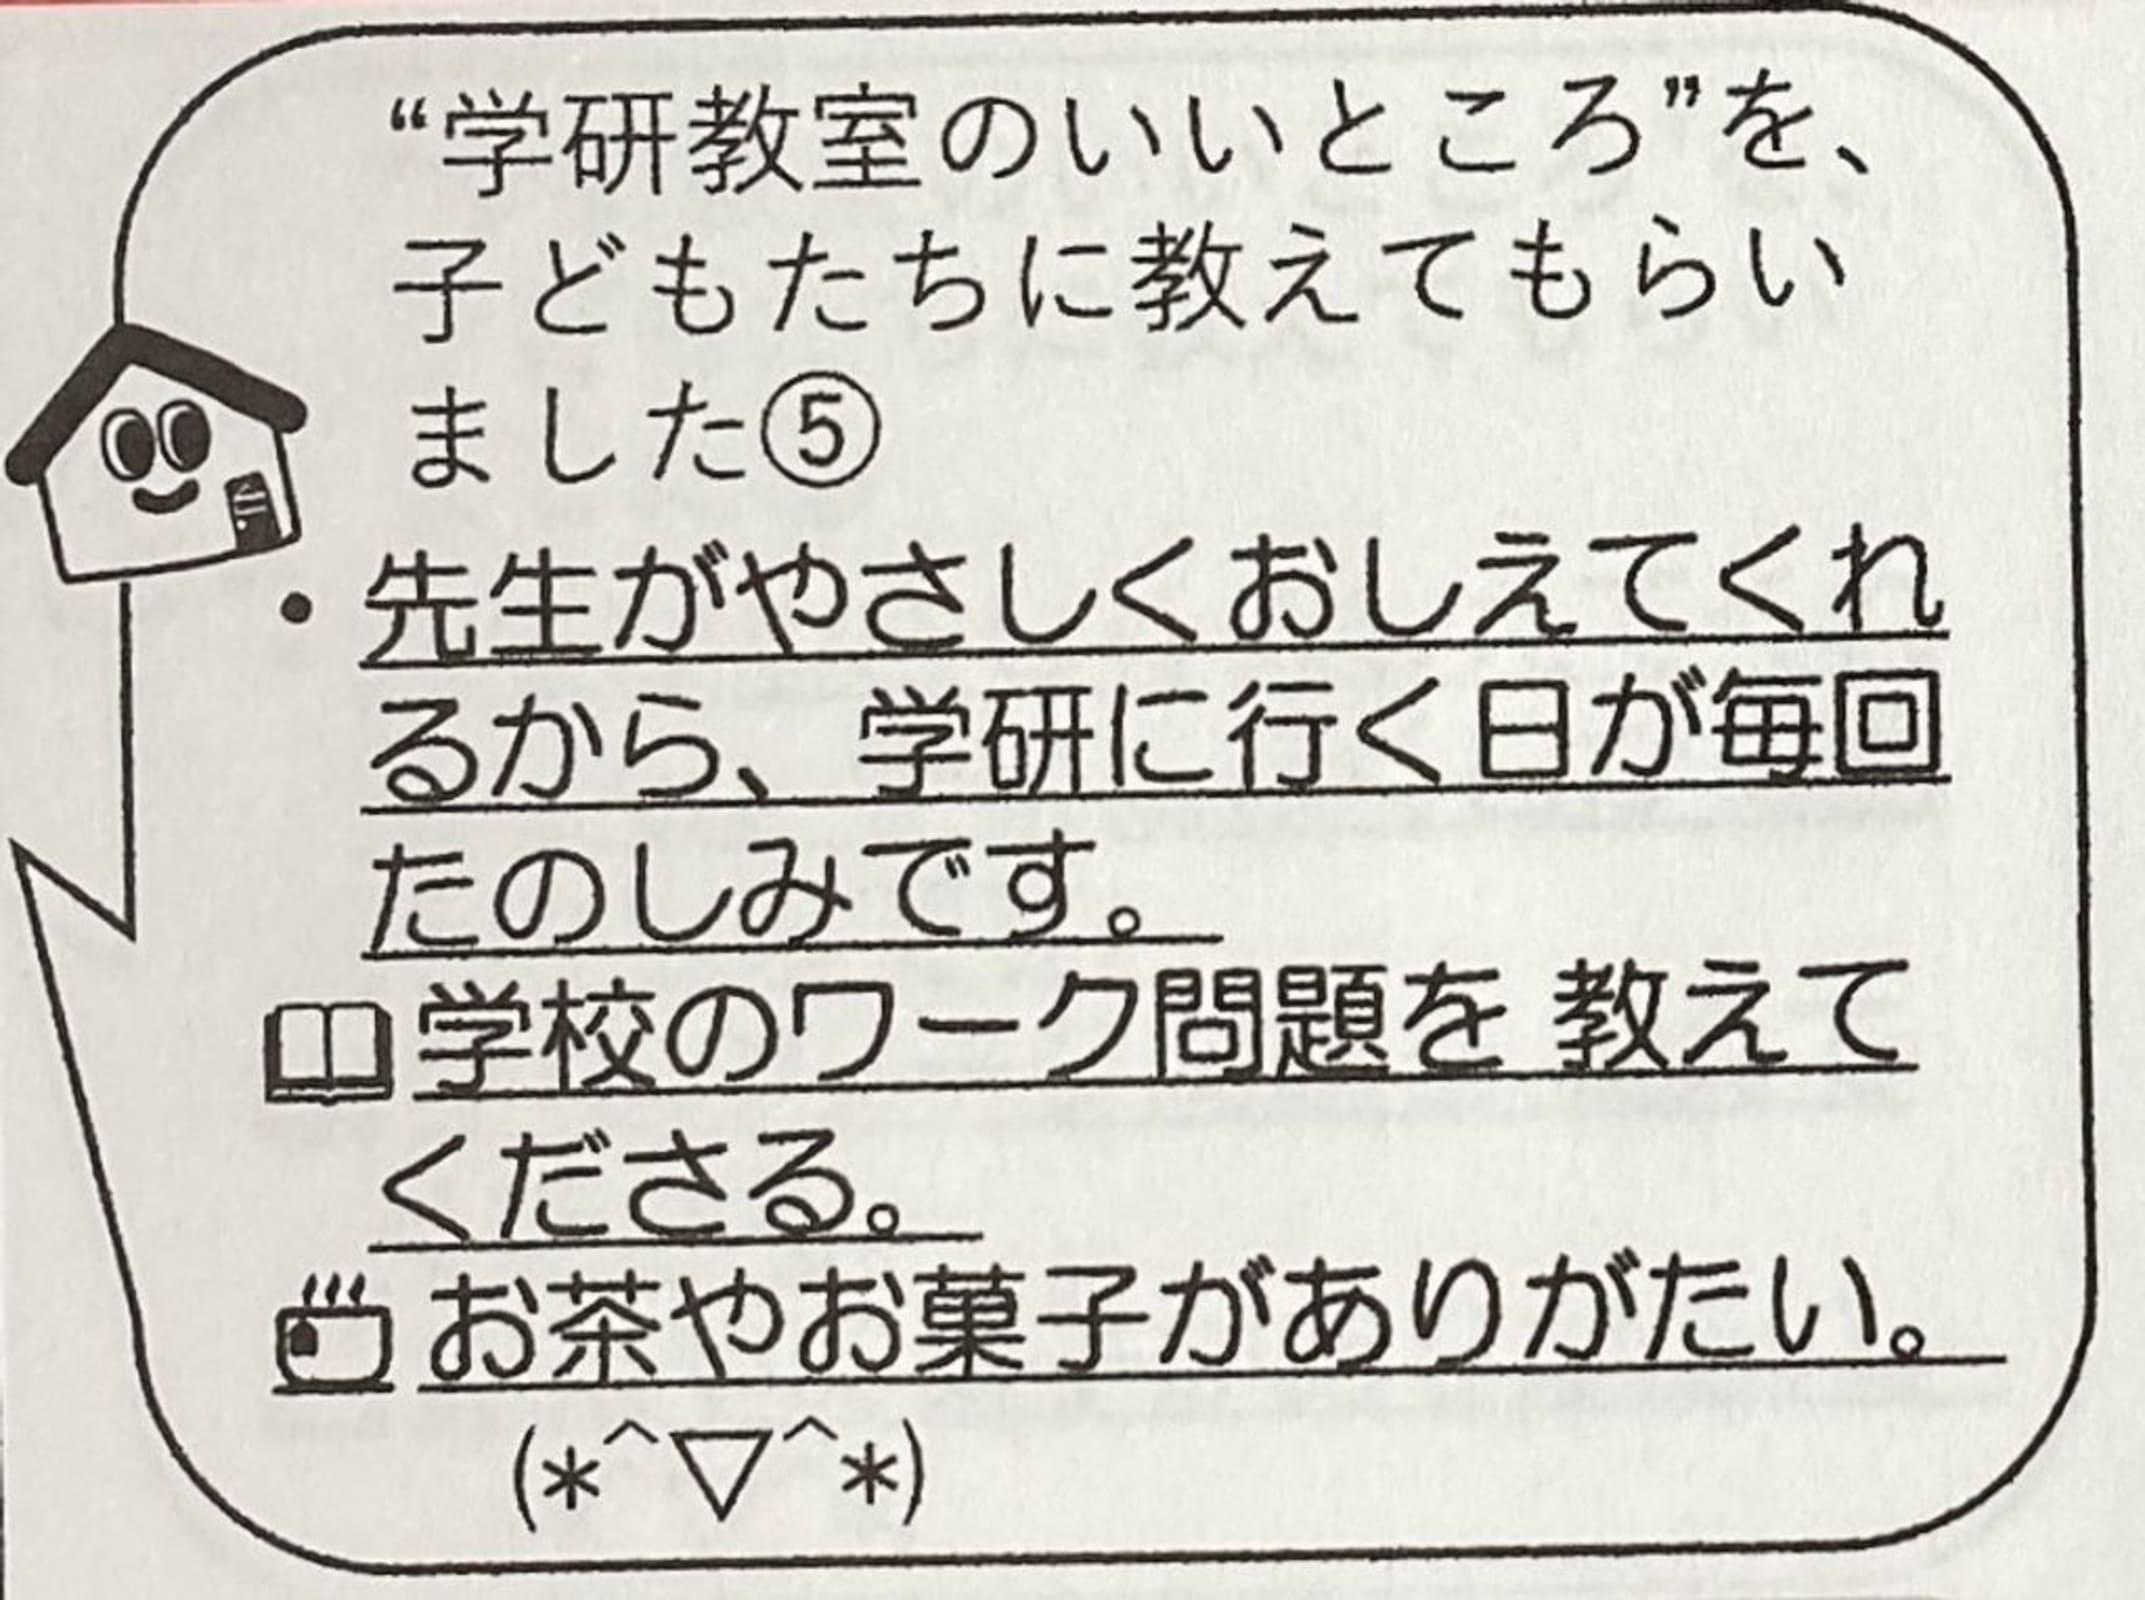 “学研教室のいいところ”を、
子どもたちに教えてもらい
ました⑤
・先生がやさしくおしえてくれ
るから、学研に行く日が毎回
たのしみです。
学校のワーク問題を 教えて
くださる。
お茶やお菓子がありがたい。
(*^▽^*)